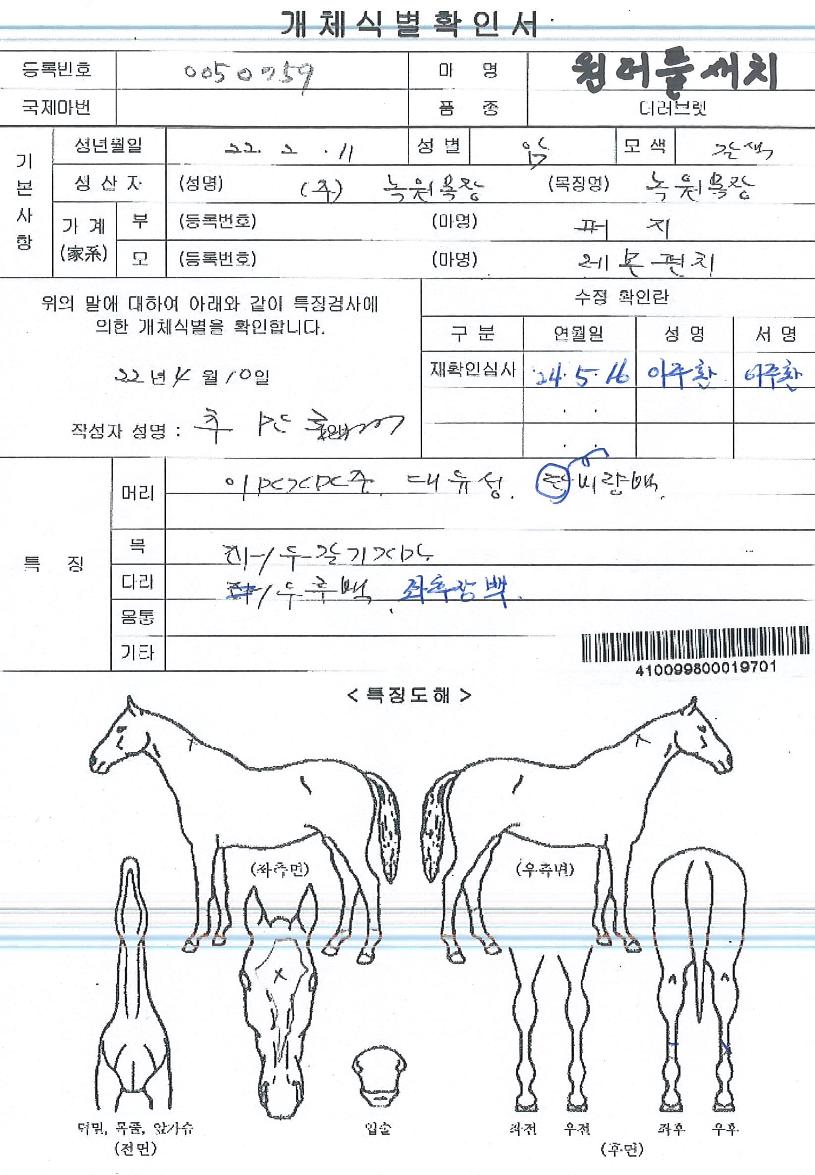 개체식별확인서
등록번호 0050759 마 명 원더풀써치
국제마번 품 종 더러브렛
기본사항
생년월일 22. 2. 11 성별 암 모색 갈색
생산자 (성명) (주) 녹원목장 (목장명) 녹원목장
가계 (家系) 부 (등록번호) (마명) 퍼지
모 (등록번호) (마명) 레몬펀치
위의 말에 대하여 아래와 같이 특징검사에
의한 개체식별을 확인합니다.
22년 4월 10일
작성자 성명 :
수정 확인란
구분 연월일 성명 서명
재확인심사 '24. 5. 16 이주환 이주환
. .
. .
특 징
머리 대유성. 비량백.
목
다리 좌후장백.
몸통
기타
410099800019701
< 특징도해 >
(좌측면) (우측면)
턱밑, 목줄, 앞가슴
(전면)
입술
좌전 우전
좌후 우후
(후면)